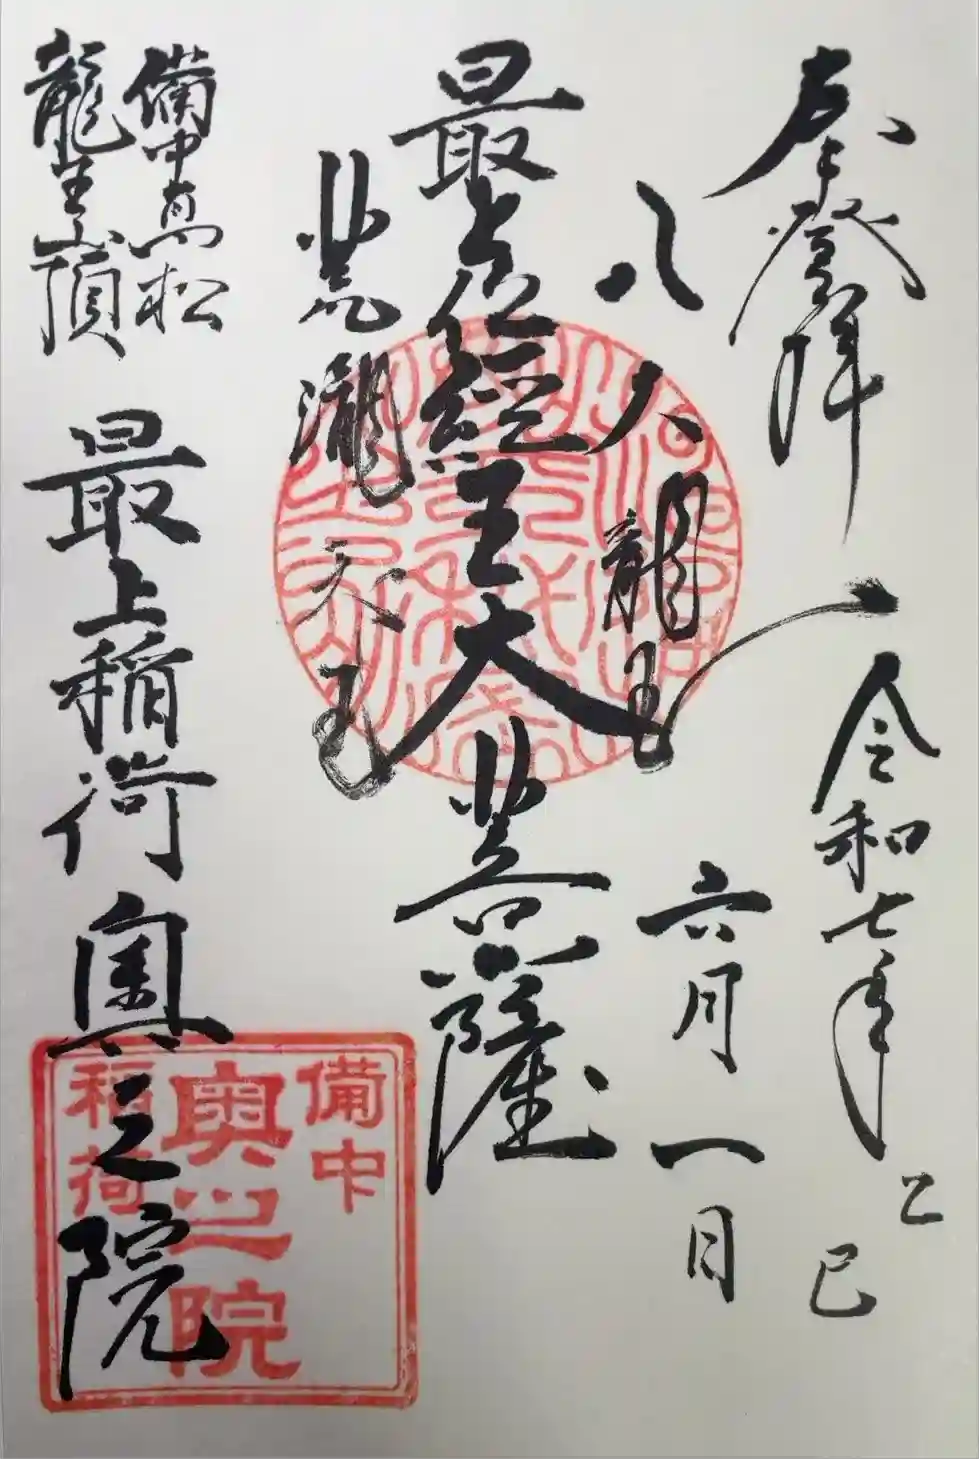 奉登拝
令和七年 乙巳
六月一日
八大龍王
最上位經王大菩薩
荒瀧天王
備中高松
龍王山頂
最上稲荷奥之院
備中
奥之院
稲荷